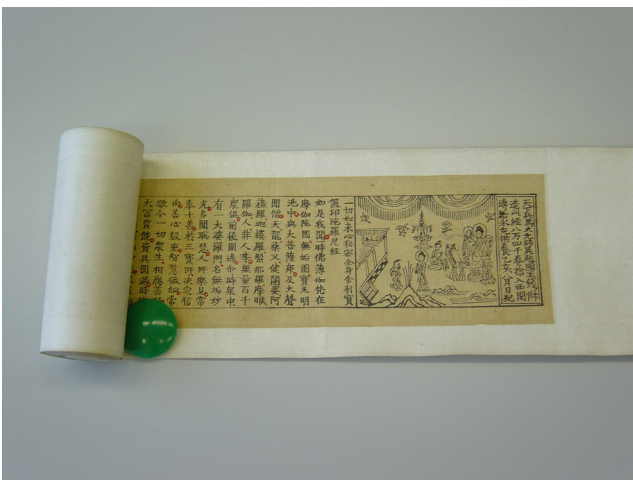 天下兵馬大元帥吳越國王錢俶
造此經八万四千卷捨入西関
塼塔永充供養乙亥八月日紀
一切如來心秘密全身舍利寶
篋印陀羅尼經
如是我聞一時佛薄伽梵在
摩伽陀國無垢園寶光明
池中與大菩薩衆及大聲
聞僧天龍藥叉健闥婆阿
蘇羅迦樓羅緊那羅摩睺
羅伽人非人等無量百千
衆俱前後圍遶尒時衆中
有一大婆羅門名無垢妙
光多聞聰慧人所樂見常
奉十善於三寶所決定信
向善心殷重智慧微細常
欲令一切衆生相應善利
大富豐饒資具圓滿時